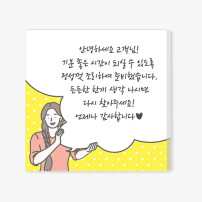 안녕하세요 고객님!
기분 좋은 시간이 되실 수 있도록
정성껏 조리하여 준비했습니다.
든든한 한끼 생각 나시면
다시 찾아주세요!
언제나 감사합니다♥